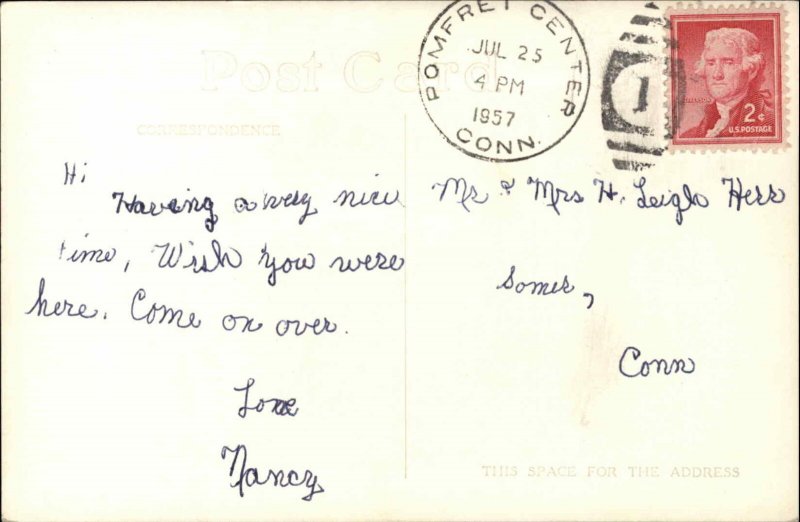 Post Card
CORRESPONDENCE
POMFRET CENTER
JUL 25
4 PM
1957
CONN.
1
JEFFERSON
2¢
U.S. POSTAGE
Hi
Having a very nice
time, Wish you were
here. Come on over.
Love
Nancy
Mr & Mrs H. Leigh Herr
Somer,
Conn
THIS SPACE FOR THE ADDRESS